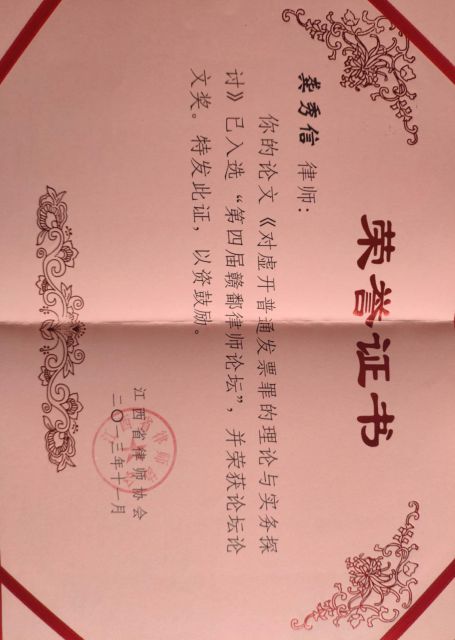 荣誉证书
龚秀信 律师：
你的论文《对虚开普通发票罪的理论与实务探
讨》已入选“第四届赣鄱律师论坛”，并荣获论坛论
文奖。特发此证，以资鼓励。
江西省律师协会
二〇一三年十一月